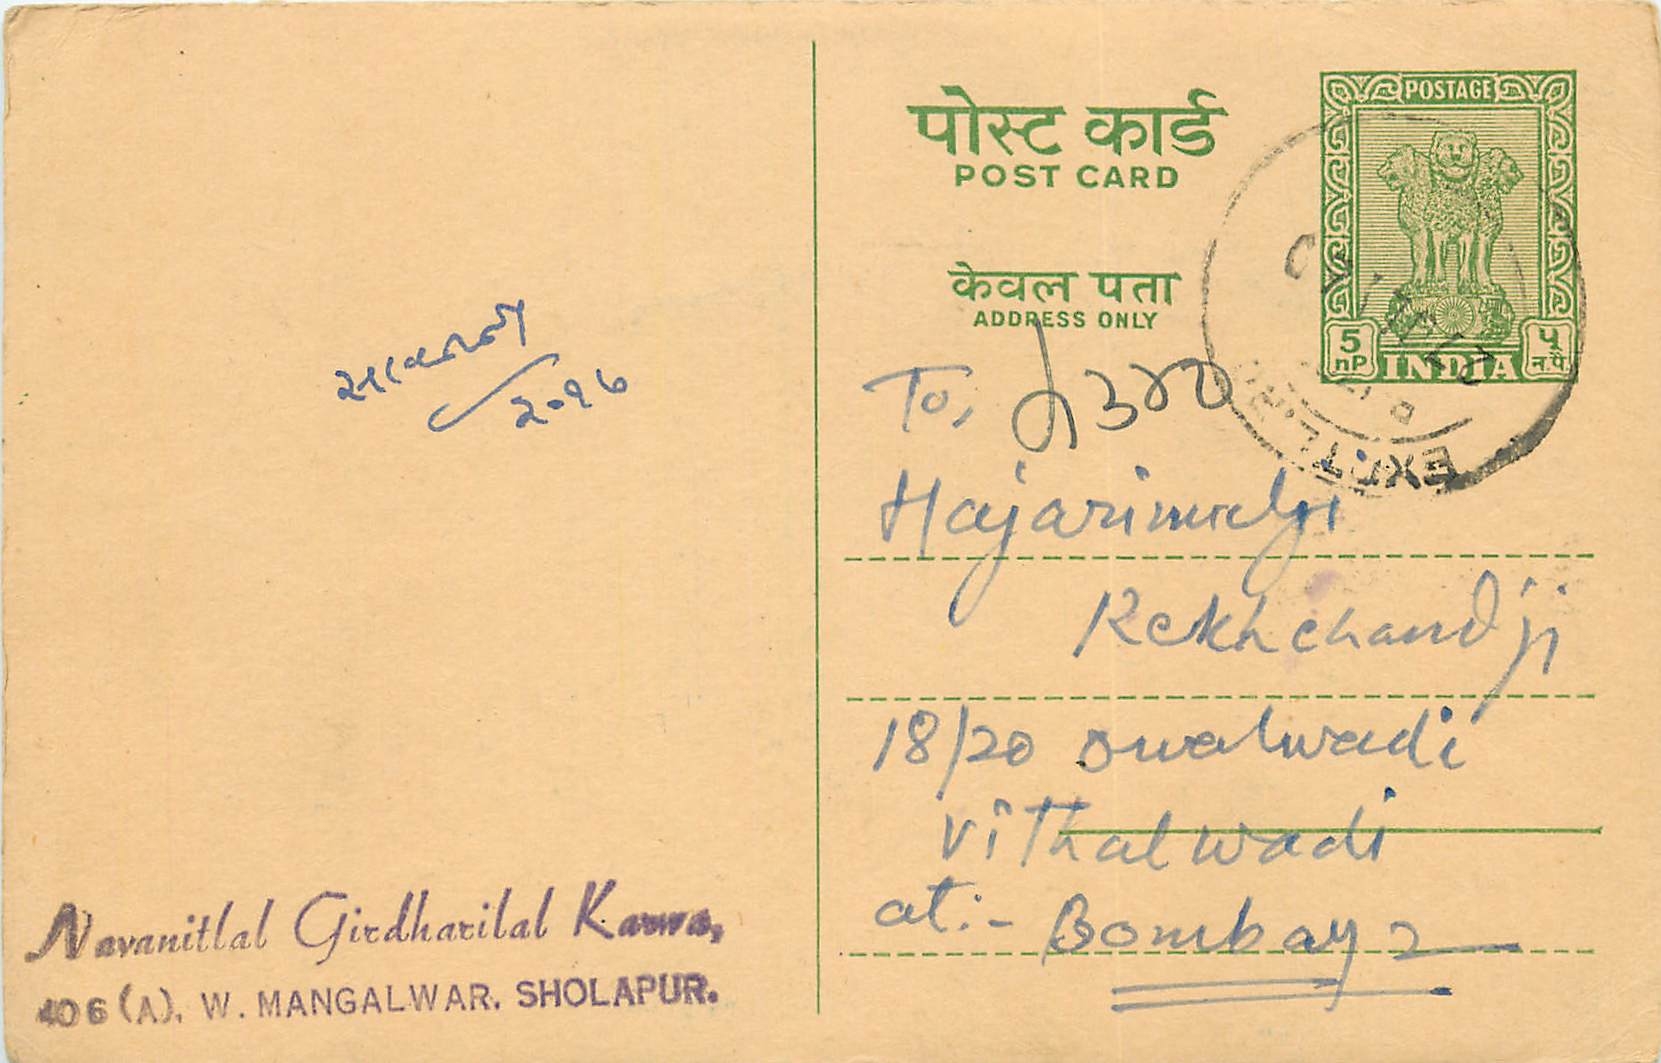 पोस्ट कार्ड
POST CARD
केवल पता
ADDRESS ONLY
POSTAGE
5 nP
INDIA
५ न.पै.
To,
Hajarimalji
Rekhchandji
18/20
Vithalwadi
at:- Bombay 2
Navanitlal Girdharilal Karwa,
406 (A), W. MANGALWAR, SHOLAPUR.